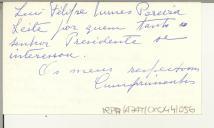 Luís Filipe Nunes Pereira
Leite por quem tanto o
senhor Presidente se
interessou.
Os meus respeitosos
Cumprimentos